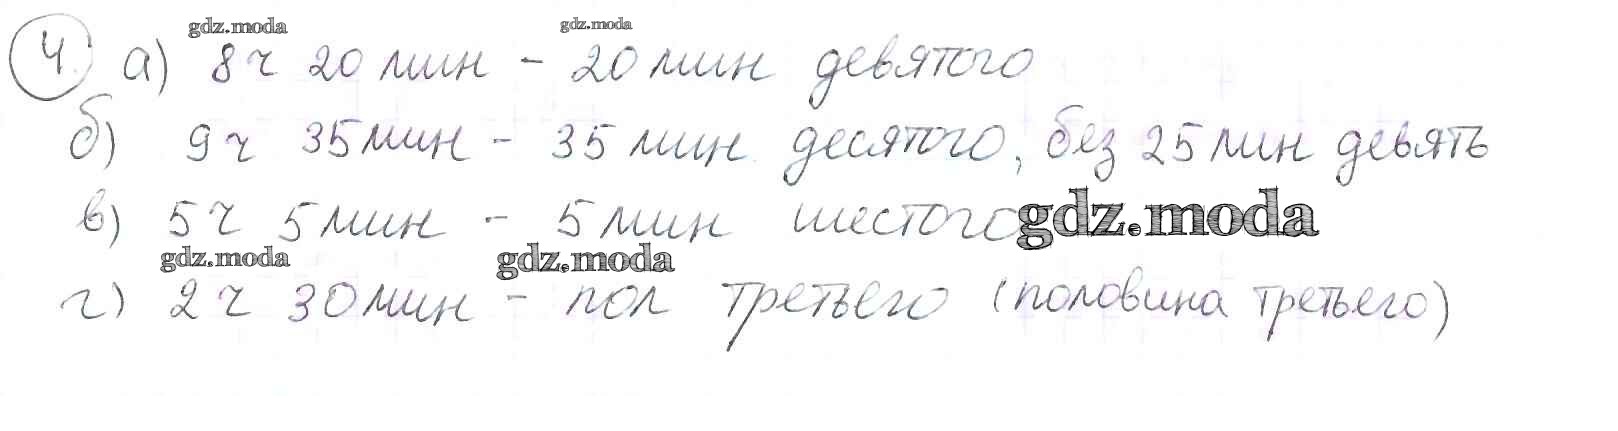 gdz.moda gdz.moda
4. а) 8 ч 20 мин - 20 мин девятого
б) 9 ч 35 мин - 35 мин десятого, без 25 мин девять
в) 5 ч 5 мин - 5 мин шестого gdz.moda
gdz.moda gdz.moda
г) 2 ч 30 мин - пол третьего (половина третьего)